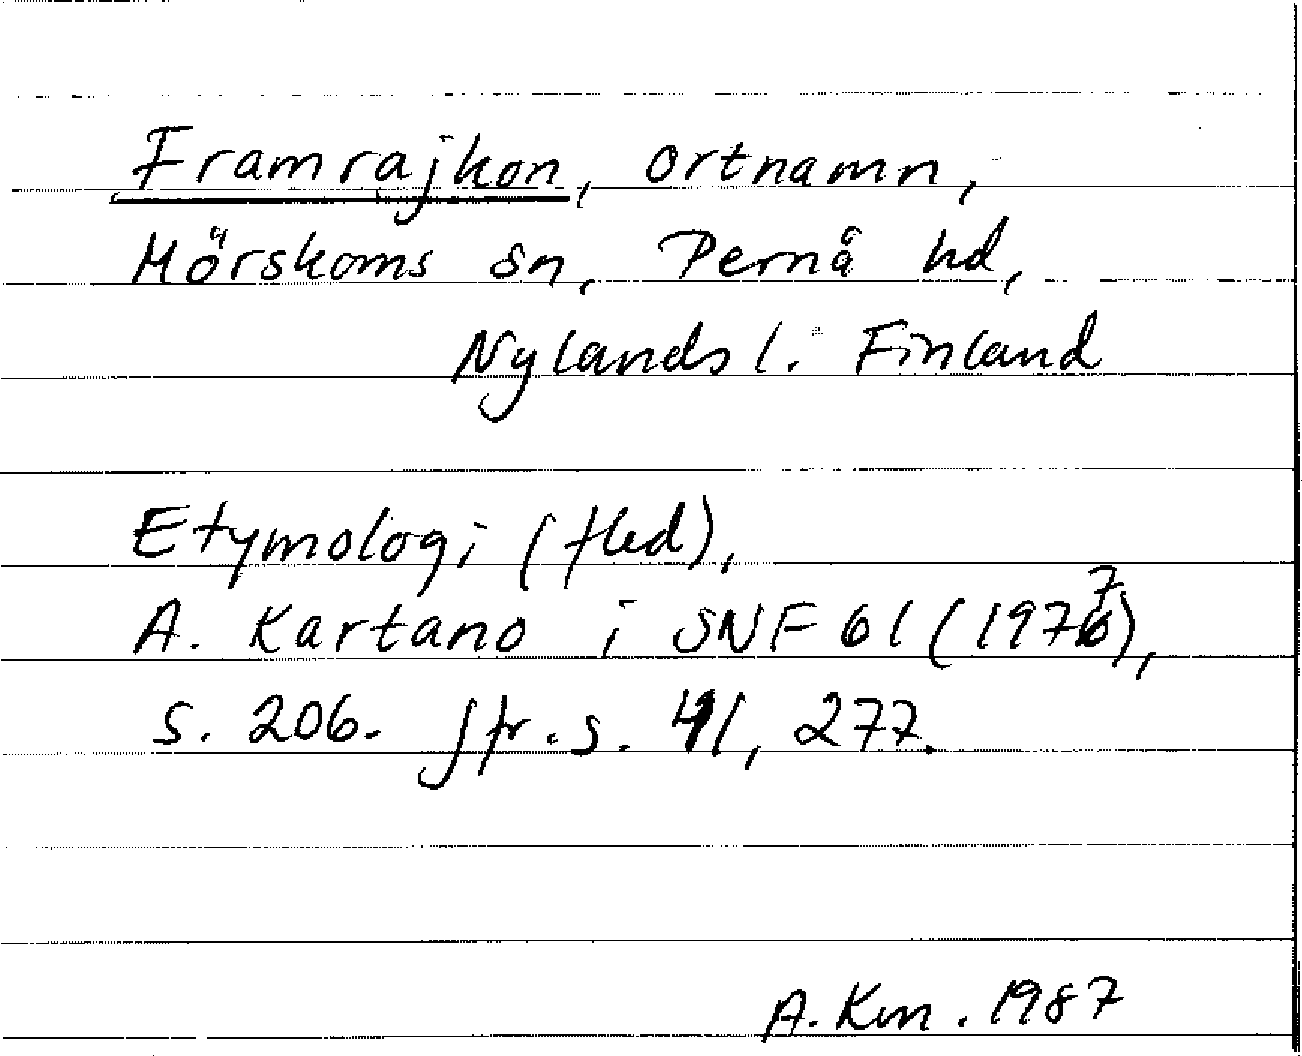 Framrajkon, ortnamn,
Mörskoms sn, Pernå hd,
Nylands l. Finland
Etymologi (fled),
A. Kartano i SNF 61 (1977),
s. 206. Jfr. s. 41, 277.
A. Km. 1987